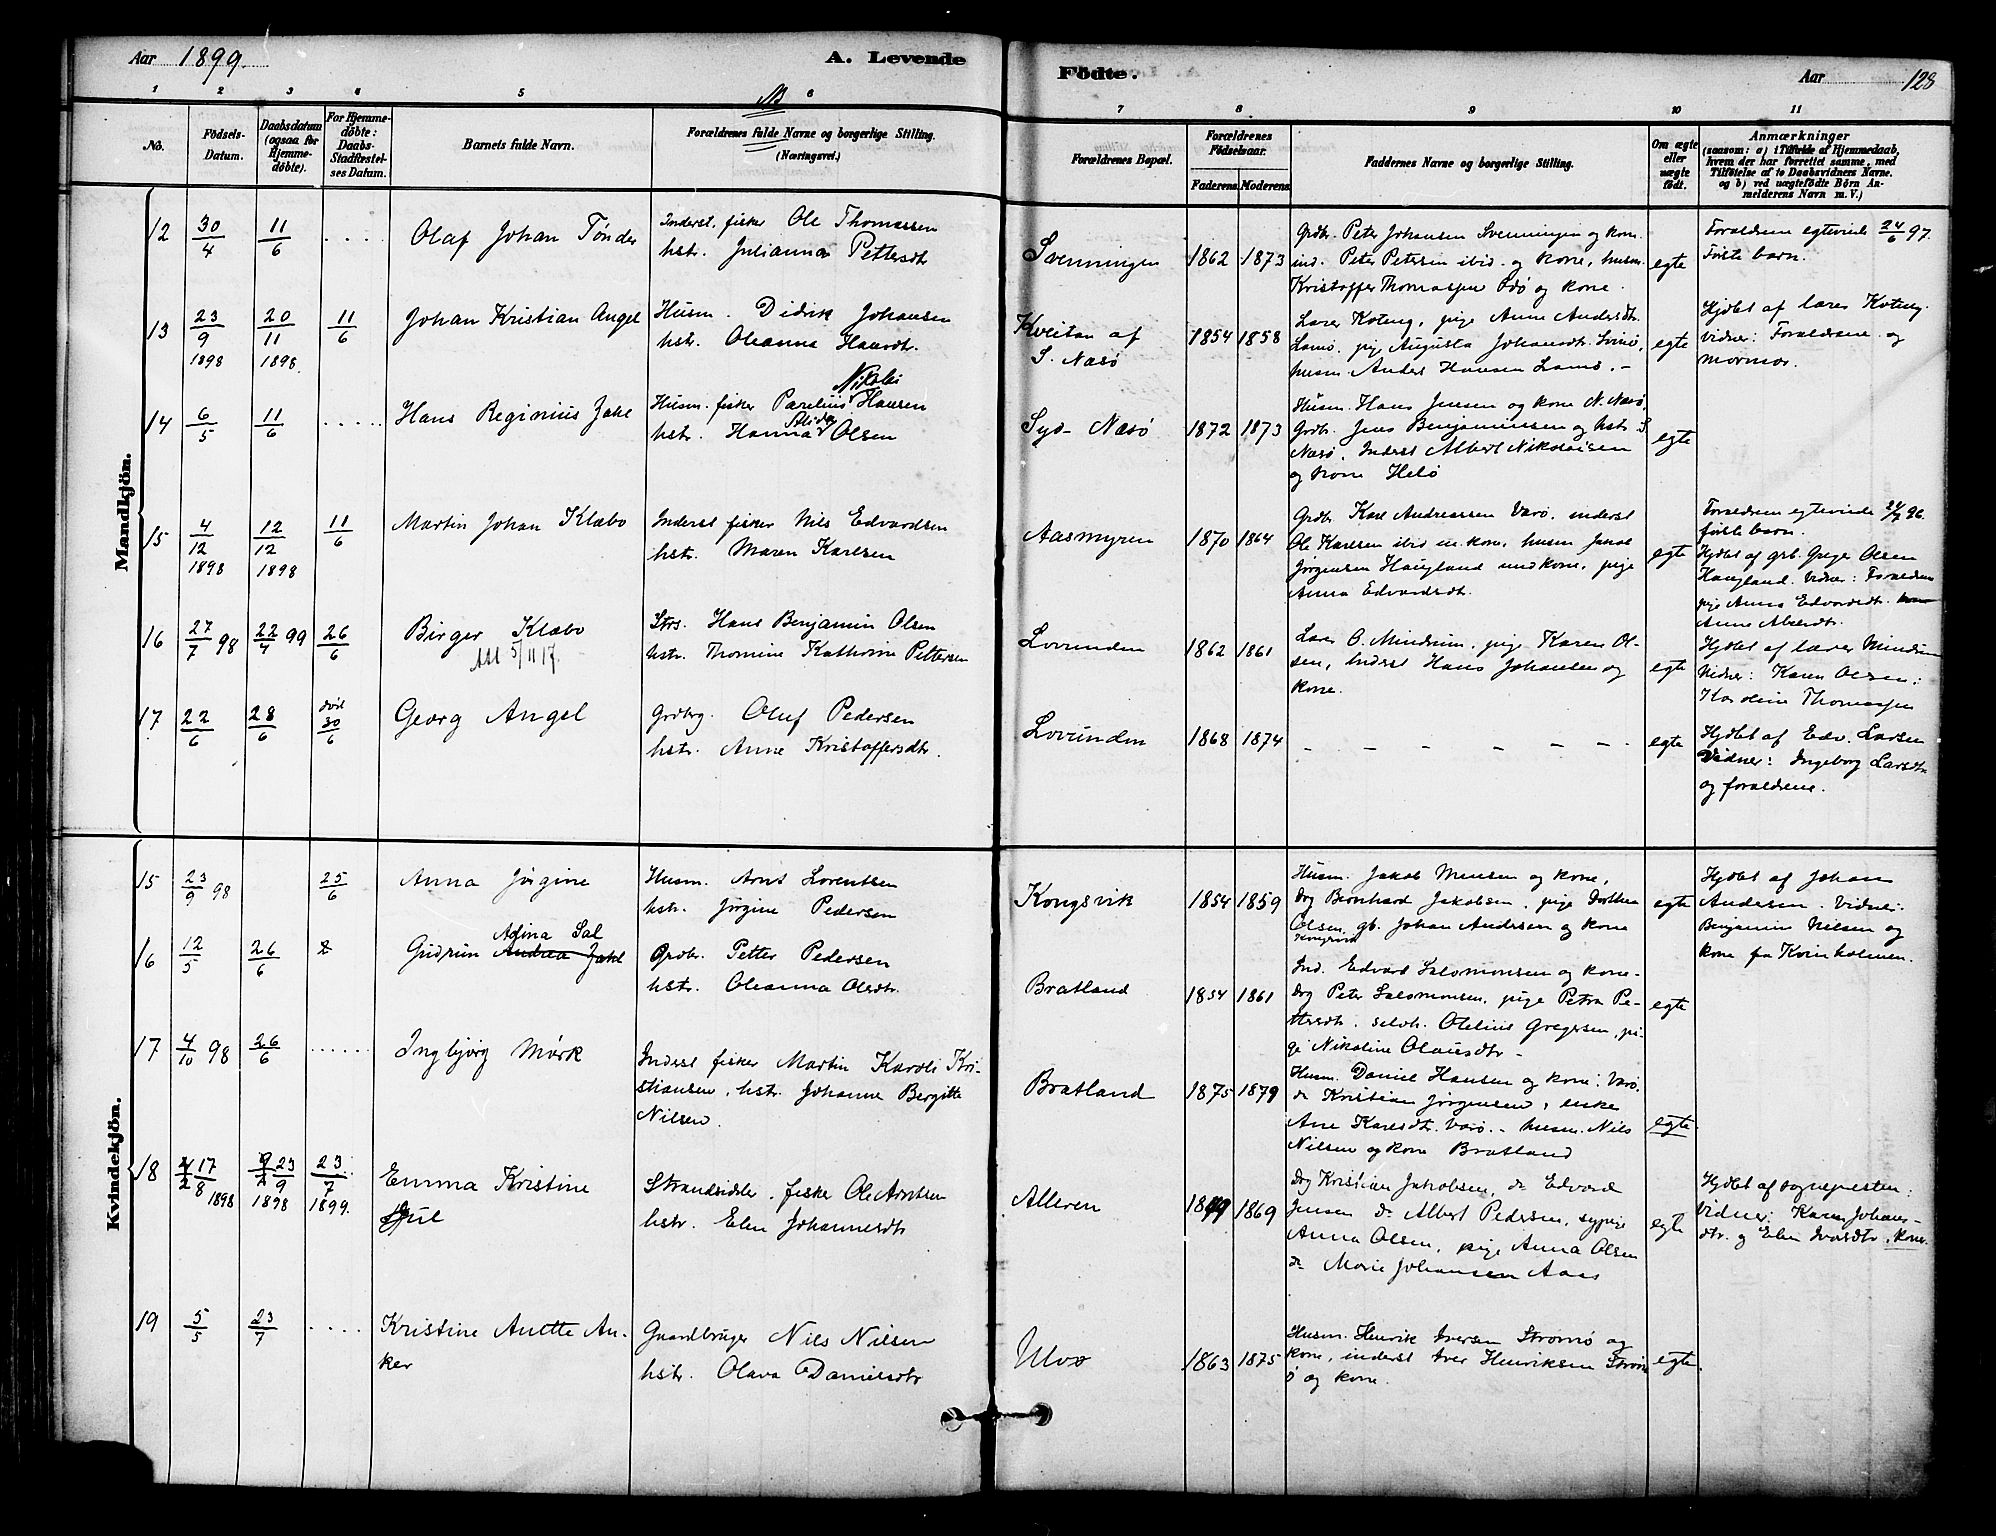 Aar 1899. A. Levende
Födte. Aar 128
1 2 3 4 5 6 7 8 9 10 11
M
No.
Födsels-Datum.
Daabsdatum (ogsaa for Hjemme-döbte).
For Hjemme-döbte: Daabs-Stadfæstel-ses Datum.
Barnets fulde Navn.
Forældrenes fulde Navne og borgerlige Stilling.
(Næringsvei.)
Forældrenes Bopæl.
Forældrenes Födselsaar.
Faderens. Moderens.
Faddernes Navne og borgerlige Stilling.
Om ægte eller uægte födt.
Anmærkninger
(saasom: a) i Tilfælde af Hjemmedaab,
hvem der har forrettet samme, med
Tilföielse af to Daabsvidners Navne.
og b) ved uægtefödte Börn An-
melderens Navn m. V.)
Mandkjön.
12 30/4 11/6 . . . . Olaf Johan Tönder
Inderst. fisker Ole Thomassen
hstr. Julianna Pettersdtr
Svenningen 1862 1873
Grdbr. Peter Johansen Svenningen og kone.
ind. Peter Petersen ibid. og kone, husm.
Kristoffer Thomassen Ödö og kone.
egte
Forældrene egteviede 24/6 97.
Første barn.
13 23/9 1898 20/11 1898. 11/6 Johan Kristian Angel
Husm. Didrik Johansen
hstr. Oleanna Hansdtr.
Kveitan af
S. Næsö
1854 1858
Lærer Koteng, pige Anne Andersdtr.
Lamö, pige Augusta Johansdtr.
husm. Anders Hansen Lamö. -
egte
Hjdbt af lærer Koteng.
vidner: Forældrene og
mormor.
14 6/5 11/6 . . . . . Hans Reginius Jakl
Nikolai
Husm. fisker Parelius Hansen
Alida
hstr. Hanna Olsen
Syd-Næsö 1872 1873
Husm. Hans Jensen og kone N. Næsö,
Grdbr. Jens Benjaminsen og hstr S.
Næsö, Inderst Albert Nikolaisen
og kone Helö
egte
15 4/12 1898 12/12 1898 11/6 Martin Johan Klæbo
Inderst fisker Nils Edvardsen
hstr. Maren Karlsen
Aasmyren 1870 1864
Grdbr. Karl Andreassen Varö, inderst
Ole Karlsen ibid m. kone, husm Jakob
Jørgensen Haugland med kone, pige
Anna Edvardsdtr.
egte
Forældrene egteviede 96.
første barn.
Hjdbt af grb. Greger Olsen
Haugland. Vidner: Forældrene
pige Anna Edvardsdtr.
16 27/7 98 22/4 99 26/6 Birger Klæbo
Att 5/11 17.
Strs. Hans Benjamin Olsen
hstr. Thomine Kathrine Pettersen
Lovunden 1862 1861
Lærer O. Mindrum, pige Karen Ol-
sen, Inderst Hans Johansen og
kone.
egte
Hjdbt af lærer Mindrum
Vidner: Karen Olsen:
Karoline Thomassen
17 22/6 28/6 död 30/6 Georg Angel
Grdbrg. Oluf Pedersen
hstr. Anne Kristoffersdtr.
Lovunden 1868 1874 - - - - - - egte
Hjdbt af Edv. Larsen
Vidner: Ingeborg Larsdtr
og forældrene.
Kvindekjön.
15 23/9 98 25/6 Anna Jörgine
Husm. Arnt Lorentsen
hstr. Jörgine Pedersen
Kongsvik 1854 1859
Husm. Jakob Mensen og kone,
Drg Bernhard Jakobsen, pige Dorthea
Olsen, gb. Johan Andersen og kone
Kongsvik
egte
Hjdbt af Johan
Andersen. Vidner:
Benjamin Nielsen og
kone fra Kvinholmen.
16 12/5 26/6
Afina Sal
Gudrun Andrea Jakl
Grdbr. Petter Pedersen
hstr. Oleanna Olsdtr.
Bratland 1854 1861
Ind. Edvard Salomonsen og kone-
Drg Peter Salomonsen, pige Petra Pe-
ttersdtr. selvh. Olelius Gregersen, pi-
ge Nikoline Olausdtr -
egte
17 4/10 98 26/6 . . . . . . Ingbjörg Mörk
Inderst fisker Martin Karoli Kri-
stiansen, hstr. Johanne Bergitte
Nilsen.
Bratland 1875 1879
Husm. Daniel Hansen og kone, Varö,
do Kristian Jörgensen, enke
Ane Karlsdtr. Varö. - husm. Nils
Nilsen og kone Bratland
egte
18 17/8 1898 23/9 1898 23/7 1899. Emma Kristine
Jul
Strandsidder, fisker Ole Arntsen
hstr. Elen Johannesdtr
Alteren 1849 1869
Drg Kristian Jakobsen, do Edvard
Jensen do Albert Pedersen, sypige
Anna Olsen, pige Anna Olsen
do Marie Johansen Aas
egte
Hjdbt af sognepresten:
vidner: Karen Johans-
dtr. og Elen Ivarsdtr, kone.
19 5/5 23/7 . . . . Kristine Anette An-
ker
Gaardbruger Nils Nilsen
hstr. Olava Danielsdtr
1863 1875
Husm. Henrik Iversen Strömö og
kone, inderst Iver Henriksen Ström-
ö og kone.
egte.